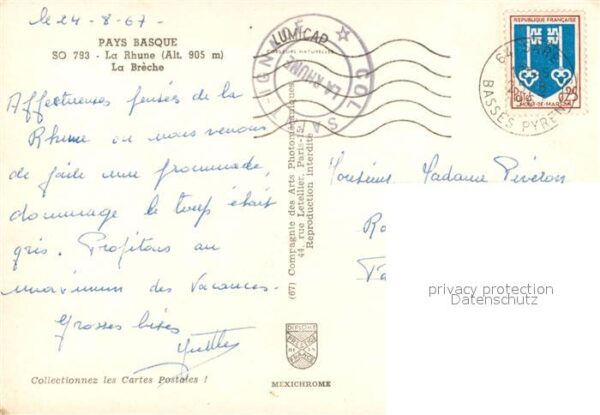 le 24-8-67-
PAYS BASQUE
SO 793 - La Rhune (Alt. 905 m)
La Brèche
Affectueuses pensées de la
Rhune où nous venons
de faire une promenade,
dommage le temps était
gris. Profitons au
maximum des vacances.
Grosses bises
Collectionnez les Cartes Postales !
(67) Compagnie des Arts Photomécaniques
44, rue Letellier, Paris-15e
Reproduction interdite
LUMICAP
COULEURS NATURELLES
COL
ST-IGNACE
LA RHUNE
MEXICHROME
REPUBLIQUE FRANÇAISE
0,25
MONT-DE-MARSAN
64
BASSES PYRENEES
Monsieur, Madame Piveron
privacy protection
Datenschutz